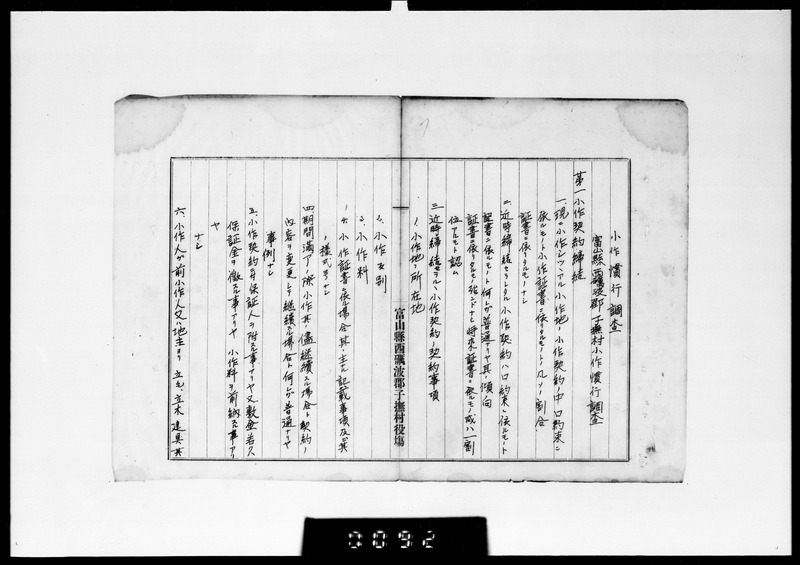 小作慣行調査
富山縣西礪波郡子撫村小作慣行調査
第一 小作契約締結
一、現ニ小作シツヽアル小作地ノ小作契約ノ中口約束ニ
依ルモノト小作証書ニ依リタルモノトノ凡ソノ割合
証書ニ依リタルモノナシ
二、近時締結セラレタル小作契約ハ口約束ニ依ルモノト
証書ニ依ルモノト何レガ普通ナリヤ其ノ傾向
証書ニ依リタルモノ殆ンドナシ将来証書ニ依ルモノ或ハ一割
位アルモノト認ム
三、近時締結セラルヽ小作契約ノ契約事項
1、小作地ノ所在地
富山縣西礪波郡子撫村役塲
2、小作反別
3、小作料
4、小作証書ニ依ル場合其ノ主ナル記載事項及其
ノ様式等ナシ
四、期間満了ノ際小作其ノ儘継續スル場合ト契約ノ
内容ヲ変更シテ継續スル場合ト何レガ普通ナリヤ
事例ナシ
五、小作契約ニ付保証人ヲ附スル事アリヤ又敷金若ハ
保証金ヲ徴スル事アリヤ 小作料ヲ前納スル事アリ
ヤ
ナシ
六、小作人ガ前小作人又ハ地主ヨリ 立毛、立木 建具其
0092